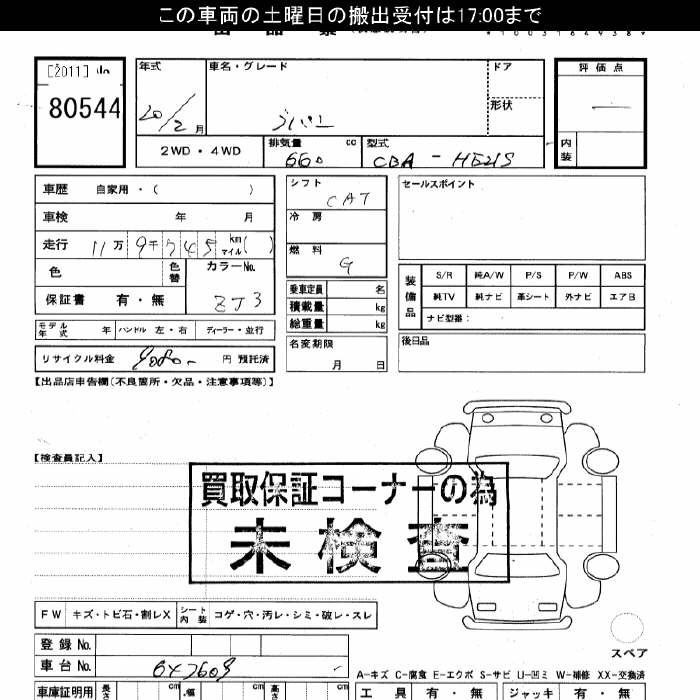 この車両の土曜日の搬出受付は17:00まで
[2011]
80544
年式 車名・グレード ドア 評価点
20/2月 ラパン 形状 —
2WD・4WD 排気量 cc 型式 内装
660 CBA - HE21S
車歴 自家用・( ) シフト CAT セールスポイント
車検 年 月 冷房
走行 11万9千745km マイル( ) 燃料 G
色 色替 カラーNo. ZJ3
保証書 有・無
乗車定員 名
積載量 kg
総重量 kg
装備品 S/R 純A/W P/S P/W ABS
純TV 純ナビ 革シート 外ナビ エアB
ナビ型番:
モデル年式 年 ハンドル 左・右 ディーラー・並行
名変期限 月 日
後日品
リサイクル料金 円 預託済
【出品店申告欄(不良箇所・欠品・注意事項等)】
【検査員記入】
買取保証コーナーの為
未検査
FW キズ・トビ石・割レX シート内装 コゲ・穴・汚レ・シミ・破レ・スレ
スペア
登録No.
車台No.
A-キズ C-腐食 E-エクボ S-サビ U-凹ミ W-補修 XX-交換済
車庫証明用 長さ cm 幅 cm 高さ cm 工具 有・無 ジャッキ 有・無